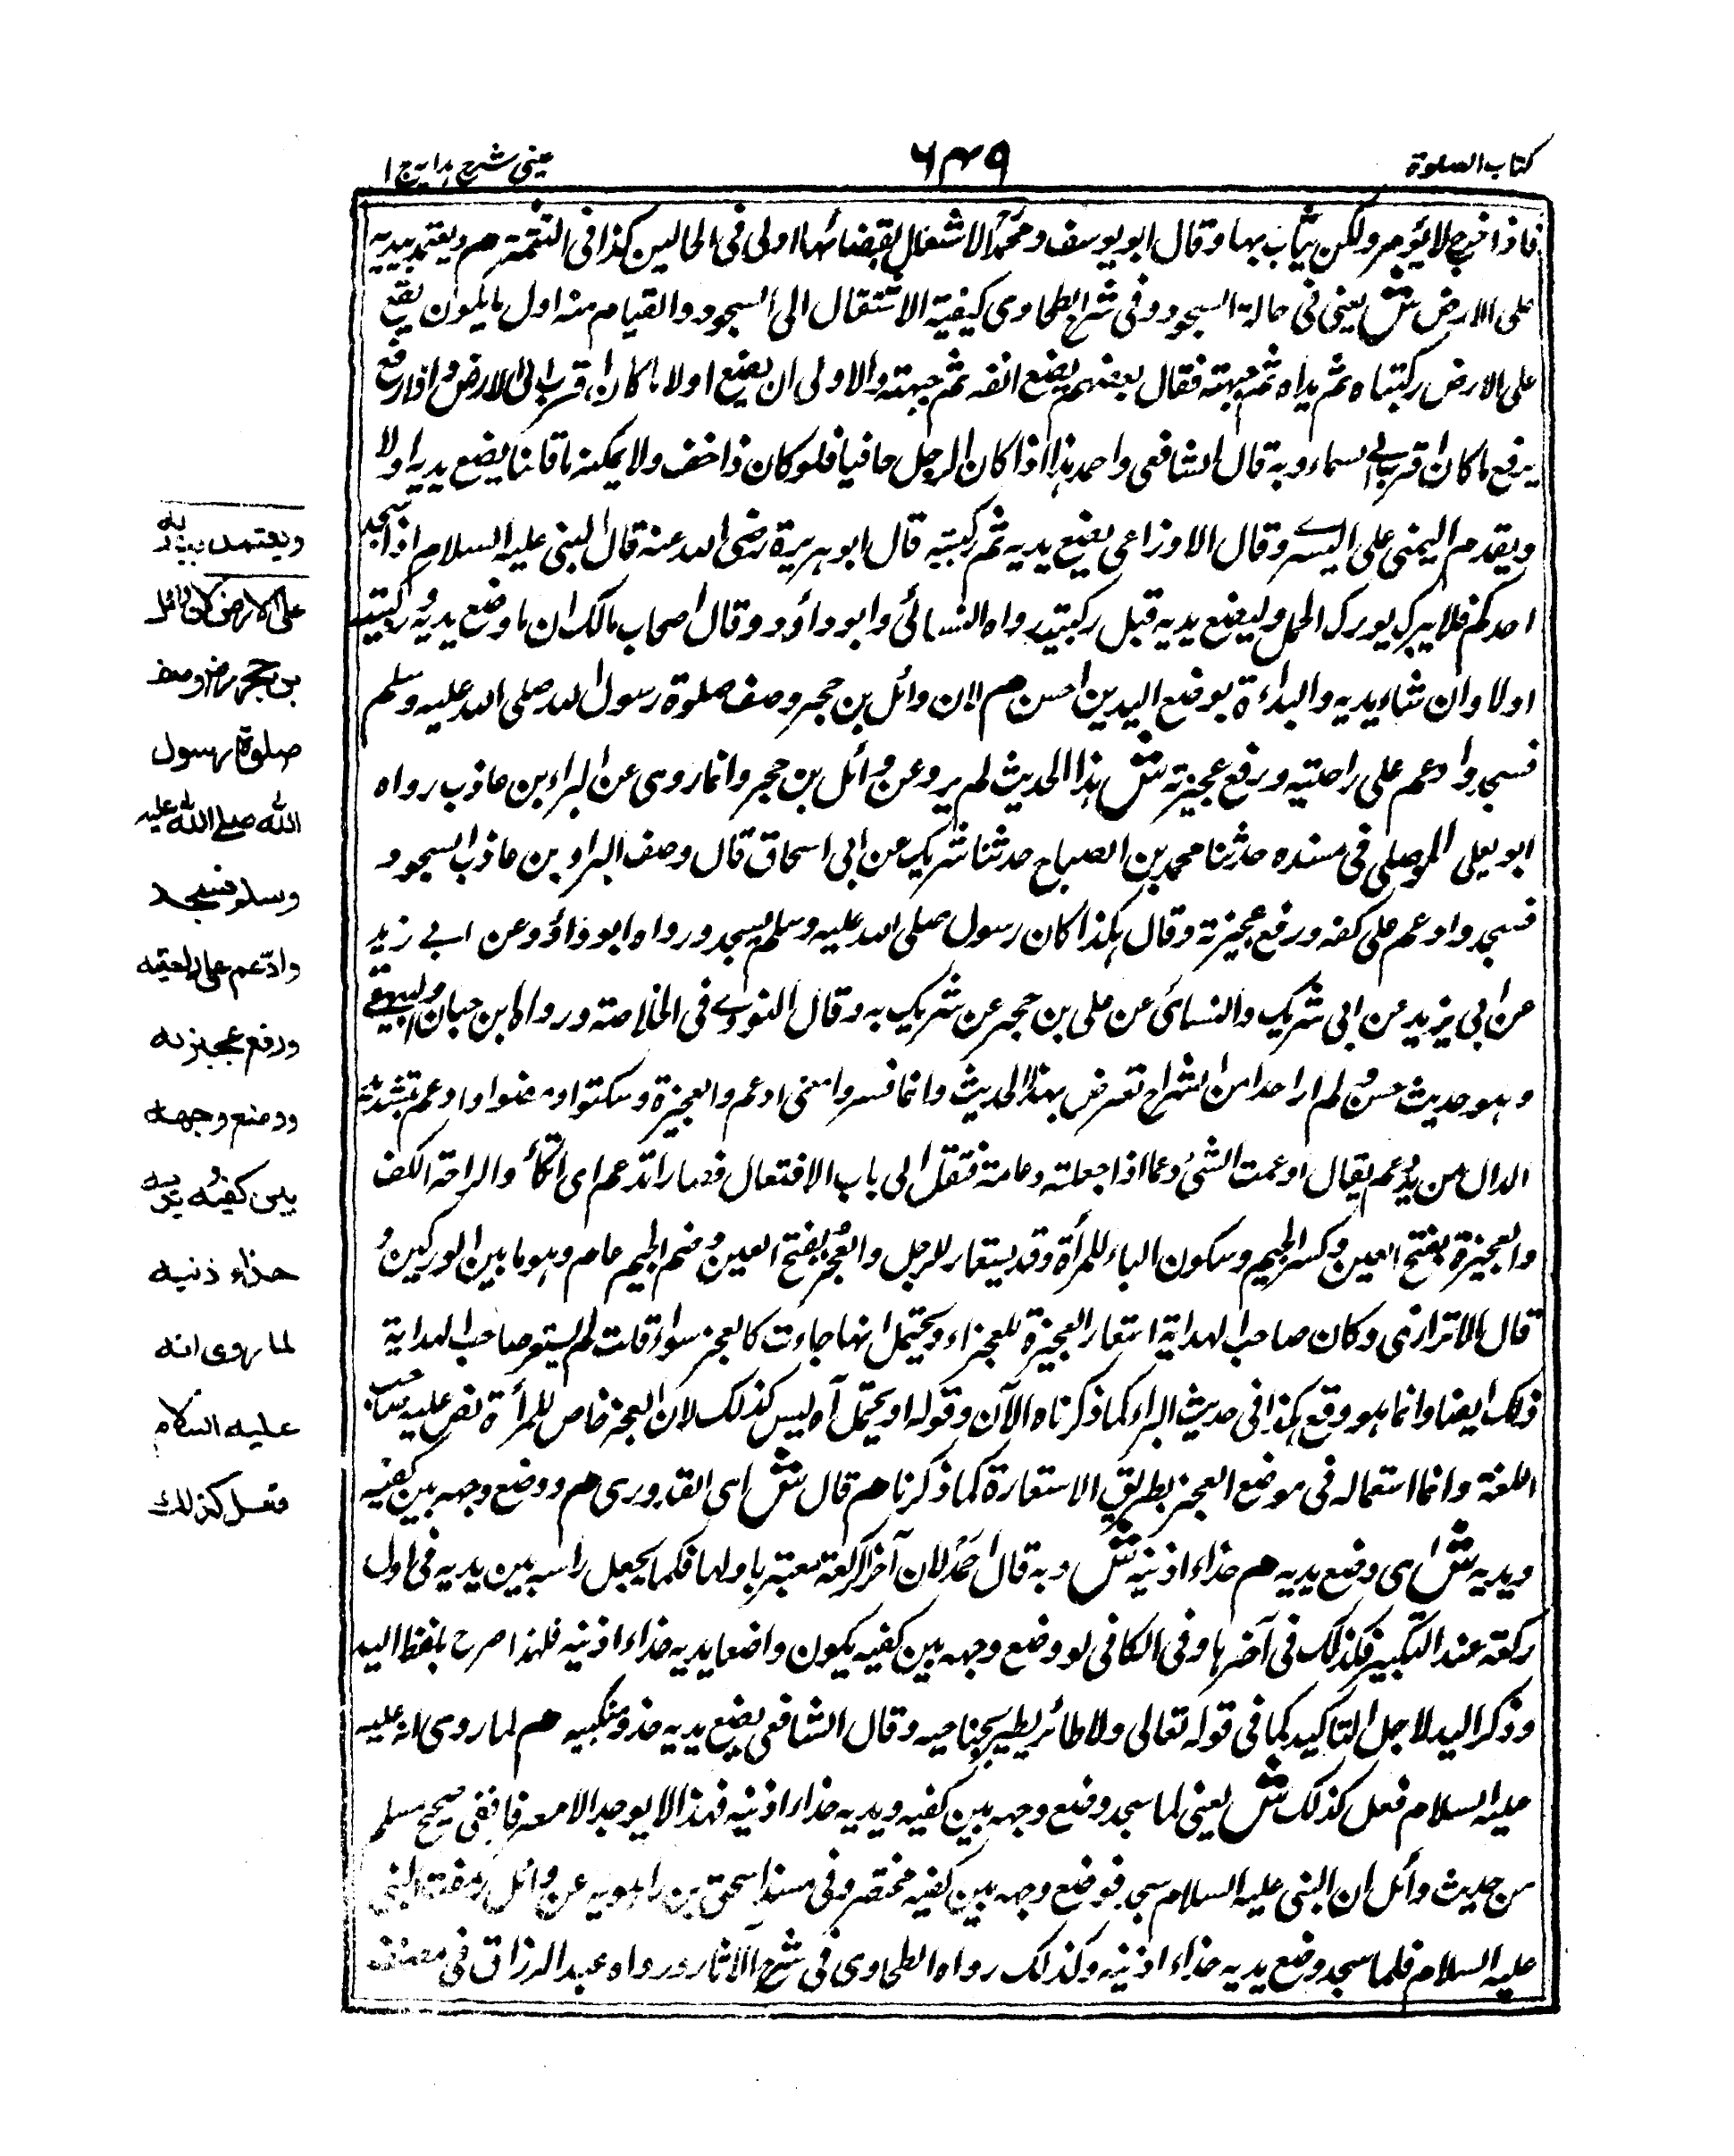 كتاب الصلوة
۶۴۹
عينى شرح هدايه ج ١
فاذا خبب لا يؤمر ولكن يثاب بها وقال ابو يوسف ومحمد الاشتغال بقضائها اولى فى الحالين كذا فى التتمة هم ويعتمد بيديه
على الارض ش يعنى فى حالة السجود وفى شرح الطحاوى كيفية الانتقال الى السجود والقيام منه اول ما يكون يقع
على الارض ركبتاه ثم يداه ثم جبهته فقال بعضهم يضع انفه ثم جبهته والاولى ان يضع اولا ما كان اقرب الى الارض واذا رفع
يرفع ما كان اقرب الى السماء وبه قال الشافعى واحمد هذا اذا كان الرجل حافيا فلو كان ذا خف ولا يمكنه ما قلنا يضع يديه اولا
ويقدم اليمنى على اليسرے وقال الاوزاعى يضع يديه ثم ركبتيه قال ابو هريرة رضى الله عنه قال النبى عليه السلام اذا سجد
احدكم فلا يبرك بروك الجمل وليضع يديه قبل ركبتيه رواه النسائى وابو داؤد وقال اصحاب مالك ان ما وضع يديه وركبتيه
اولا وان شاء يديه والبداءة بوضع اليدين احسن هم لان وائل بن حجر وصف صلوة رسول الله صلى الله عليه وسلم
فسجد وادعم على راحتيه ورفع عجيزته ش هذا الحديث لم يرو عن وائل بن حجر وانما روى عن البراء بن عاذب رواه
ابو يعلى الموصلى فى مسنده حدثنا محمد بن الصباح حدثنا شريك عن ابى اسحاق قال وصف البراء بن عاذب السجود
فسجد وادعم على كفه ورفع عجيزته وقال هكذا كان رسول صلى الله عليه وسلم يسجد ورواه ابو داؤد عن ابے زيد
عن ابى يزيد عن ابى شريك والنسائى عن على بن حجر عن شريك به وقال النووے فى الخلاصة ورواه ابن حبان والبيهقے
وهو حديث حسن ولم ار احدا من الشراح تعرض بهذا الحديث وانما فسروا معنى ادعم والعجيزة وسكتوا ومضوا وادعم بتشديد
الدال من يدعم يقال ادعمت الشئ دعما اذا جعلته دعامة فنقل الى باب الافتعال فصار اتدعم اى اتكأ والراحة الكف
والعجيزة بفتح العين وكسر الجيم وسكون الياء للمرأة وقد يستعار للرجل والعجز بفتح العين وضم الجيم عام وهو ما بين الوركين و
قال الاترازى وكان صاحب الهداية استعار العجيزة للعجزاء ويحتمل انها جاءت كالعجز سواء قلت لم يستعر صاحب الهداية
ذلك ايضا وانما هو وقع هكذا فى حديث البراء كما ذكرناه الآن وقوله او يحتمل آه ليس كذلك لان العجز خاص للمرأة نص عليه صاحب
اللغة وانما استعماله فى موضع العجز بطريق الاستعارة كما ذكرنا هم قال ش اى القدورى هم ووضع وجهه بين كفيه
ويديه ش اى وضع يديه هم حذاء اذنيه ش وبه قال احمد لان آخر الركعة معتبر باولها فكما يجعل راسه بين يديه فى اول
ركعة عند التكبير فكذلك فى آخرها وفى الكافى لو وضع وجهه بين كفيه يكون واضعا يديه حذاء اذنيه فلهذا صرح بلفظ اليد
وذكر اليد لاجل التاكيد كما فى قوله تعالى ولا طائر يطير بجناحيه وقال الشافعى يضع يديه حذو منكبيه هم لما روى انه عليه
عليه السلام فعل كذلك ش يعنى لما سجد وضع وجهه بين كفيه ويديه حذاء اذنيه فهذا لا يوجد الا معه فانه فى صحيح مسلم
من حديث وائل ان النبى عليه السلام سجد فوضع وجهه بين كفيه مختصر وفى مسند اسحق بن راهويه عن وائل رمقت النبى
عليه السلام فلما سجد وضع يديه حذاء اذنيه وكذلك رواه الطحاوى فى شرح الآثار ورواه عبد الرزاق فى مصنفه
ويعتمد بيديه
على الارض لان وائل
بن حجر رض وصف
صلوة رسول
الله صلى الله عليه
وسلم فسجد
وادّعم على راحتيه
ورفع عجيزته
ووضع وجهه
بين كفيه ويديه
حذاء ذنيه
لما روى انه
عليه السلام
فعل كذلك